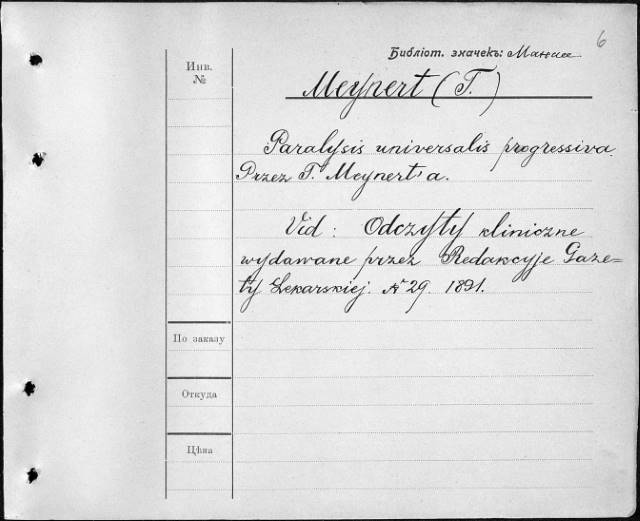 6
Библіот. значекъ: Маниа
Инв.
№
Meynert (T.)
Paralysis universalis progressiva.
Przez T. Meynert'a.
Vid: Odczyty kliniczne
wydawane przez Redakcyje Gaze-
ty Lekarskiej. № 29. 1891.
По заказу
Откуда
Цѣна